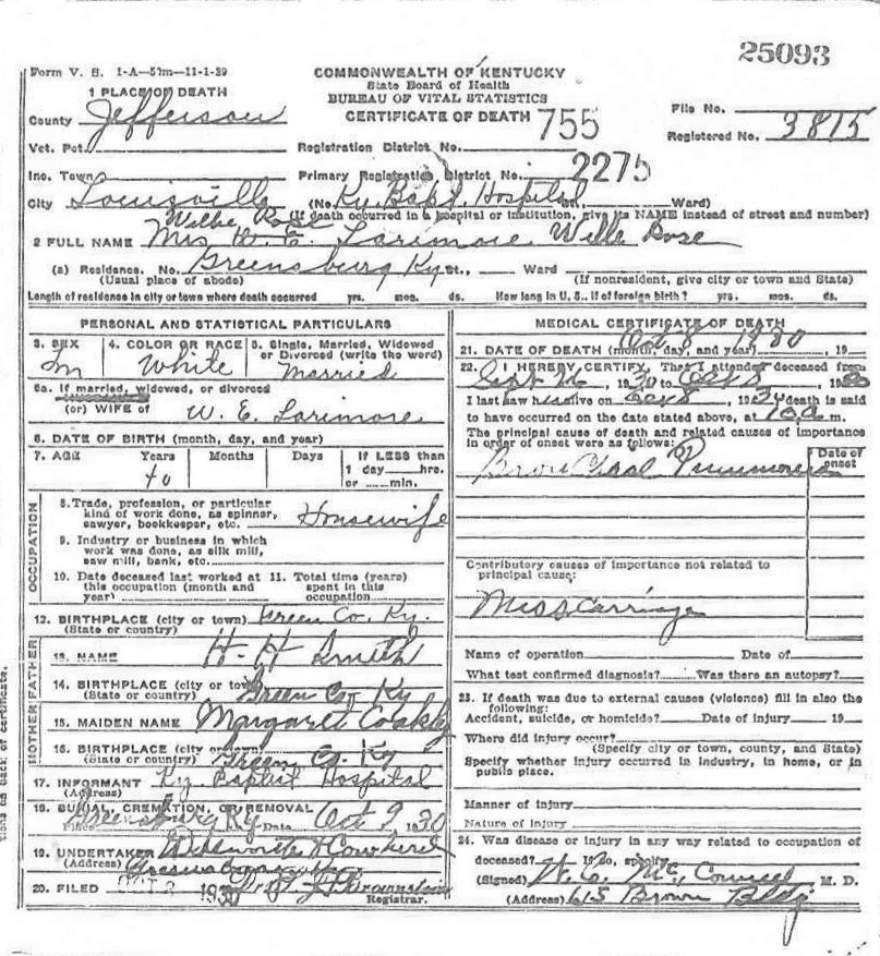 25093
Form V. S. 1-A—5 m—11-1-29
COMMONWEALTH OF KENTUCKY
State Board of Health
BUREAU OF VITAL STATISTICS
CERTIFICATE OF DEATH
755
File No.
Registered No. 3815
1 PLACE OF DEATH
County Jefferson
Vot. Pct.
Registration District No.
Inc. Town
Primary Registration District No. 2275
City Louisville
(No. Ky. Bapt. Hospital St., Ward)
(If death occurred in a hospital or institution, give its NAME instead of street and number)
2 FULL NAME Mrs W. E. Larimore
(a) Residence. No. Greensburg Ky St., Ward
(Usual place of abode)
(If nonresident, give city or town and State)
Length of residence in city or town where death occurred yrs. mos. ds. How long in U. S., if of foreign birth? yrs. mos. ds.
PERSONAL AND STATISTICAL PARTICULARS
3. SEX
4. COLOR OR RACE White
5. Single, Married, Widowed or Divorced (write the word) Married
5a. If married, widowed, or divorced
(or) WIFE of W. E. Larimore
6. DATE OF BIRTH (month, day, and year)
7. AGE Years 40 Months Days If LESS than 1 day hrs. or min.
OCCUPATION
8. Trade, profession, or particular kind of work done, as spinner, sawyer, bookkeeper, etc. Housewife
9. Industry or business in which work was done, as silk mill, saw mill, bank, etc.
10. Date deceased last worked at this occupation (month and year)
11. Total time (years) spent in this occupation
12. BIRTHPLACE (city or town) Green Co. Ky.
(State or country)
FATHER
13. NAME H. H. Smith
14. BIRTHPLACE (city or town) Green Co Ky
(State or country)
MOTHER
15. MAIDEN NAME Margaret
16. BIRTHPLACE (city or town) Green Co. Ky
(State or country)
17. INFORMANT Ky. Baptist Hospital
(Address)
18. BURIAL, CREMATION, OR REMOVAL
Place Greensburg Ky Date Oct 9 1930
19. UNDERTAKER Cowherd
(Address)
20. FILED OCT 1930
Registrar.
MEDICAL CERTIFICATE OF DEATH
21. DATE OF DEATH (month, day, and year) Oct 8 1930, 19
22. I HEREBY CERTIFY, That I attended deceased from
Sept 1930 to Oct 8, 19
I last saw alive on Oct 8, 19 death is said
to have occurred on the date stated above, at m.
The principal cause of death and related causes of importance in order of onset were as follows:
Date of onset
Pneumonia
Contributory causes of importance not related to principal cause:
Misscarriage
Name of operation Date of
What test confirmed diagnosis? Was there an autopsy?
23. If death was due to external causes (violence) fill in also the following:
Accident, suicide, or homicide? Date of injury 19
Where did injury occur?
(Specify city or town, county, and State)
Specify whether injury occurred in industry, in home, or in public place.
Manner of injury
Nature of injury
24. Was disease or injury in any way related to occupation of deceased? If so, specify
(Signed) M. D.
(Address) 615 Brown Bldg
tions on back of certificate.